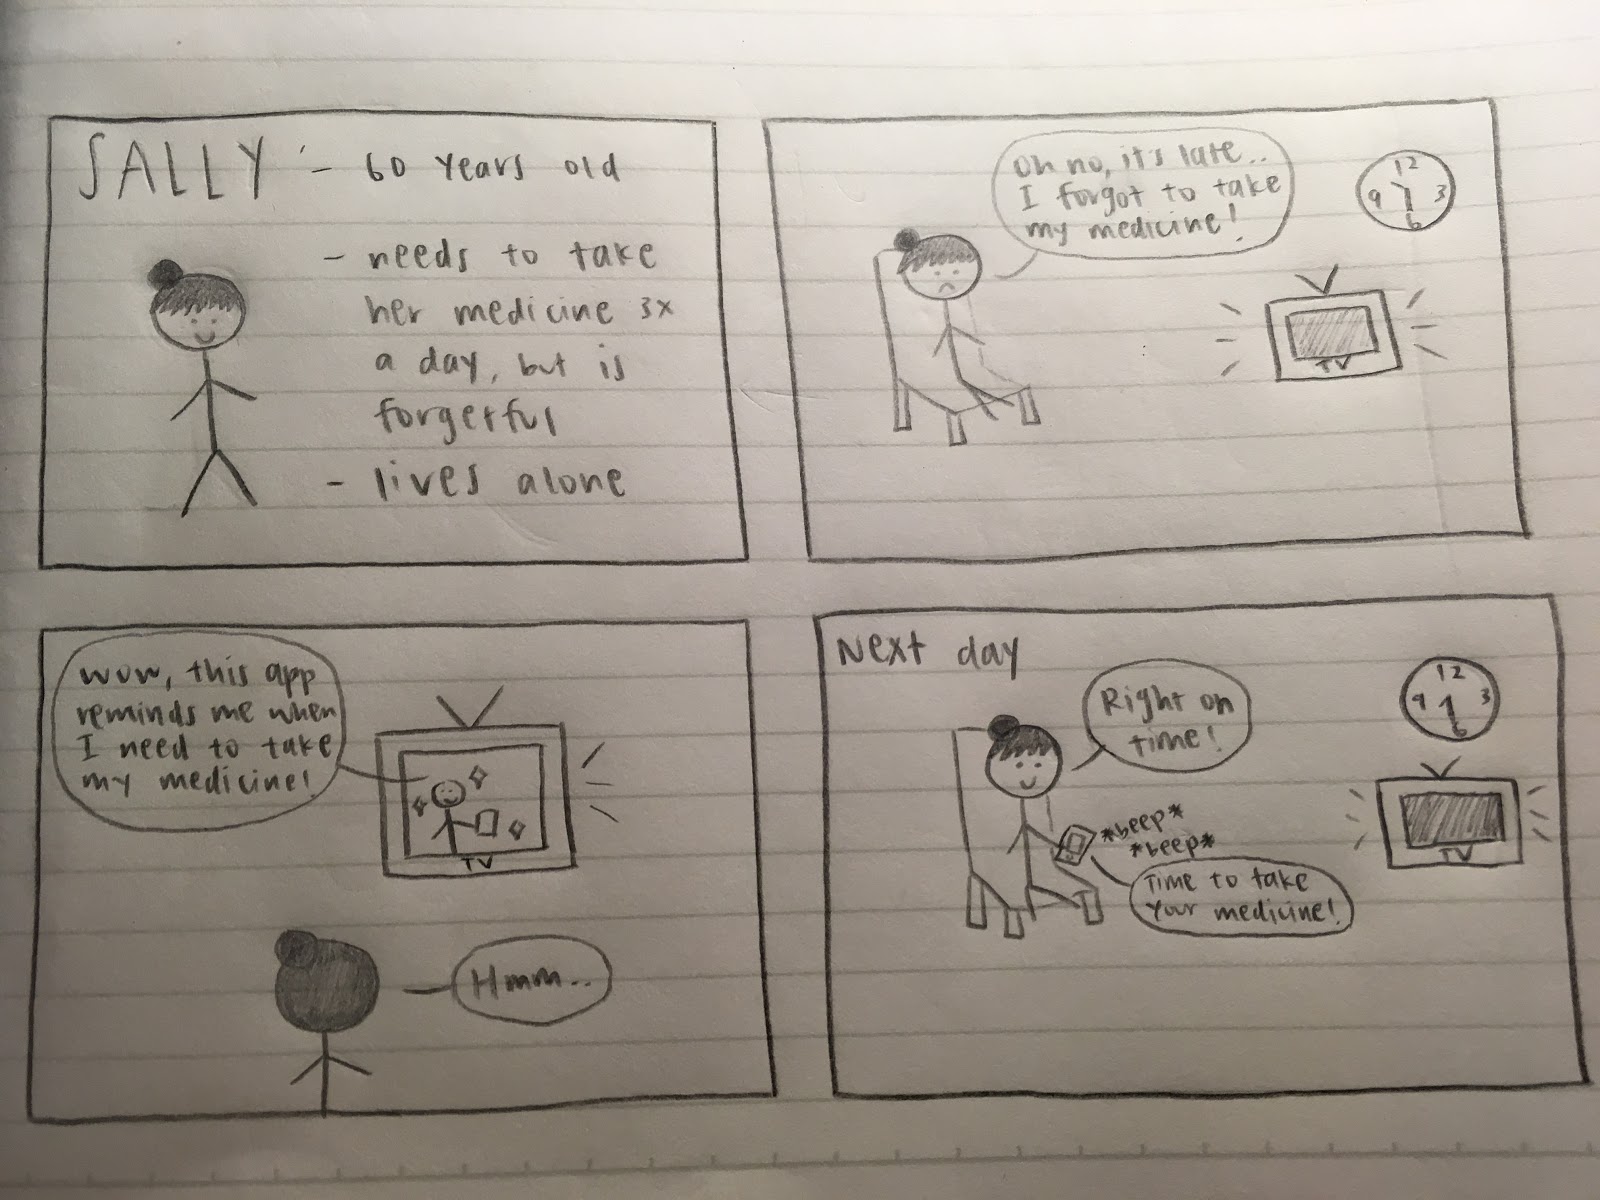 SALLY :- 60 years old
- needs to take
her medicine 3x
a day, but is
forgetful
- lives alone
Oh no, it's late..
I forgot to take
my medicine!
12
9 3
6
TV
Wow, this app
reminds me when
I need to take
my medicine!
TV
Hmm..
Next day
Right on
time!
12
9 3
6
*beep*
*beep*
Time to take
your medicine!
TV